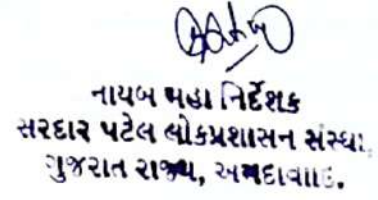 નાયબ મહા નિર્દેશક
સરદાર પટેલ લોકપ્રશાસન સંસ્થા,
ગુજરાત રાજ્ય, અમદાવાદ.